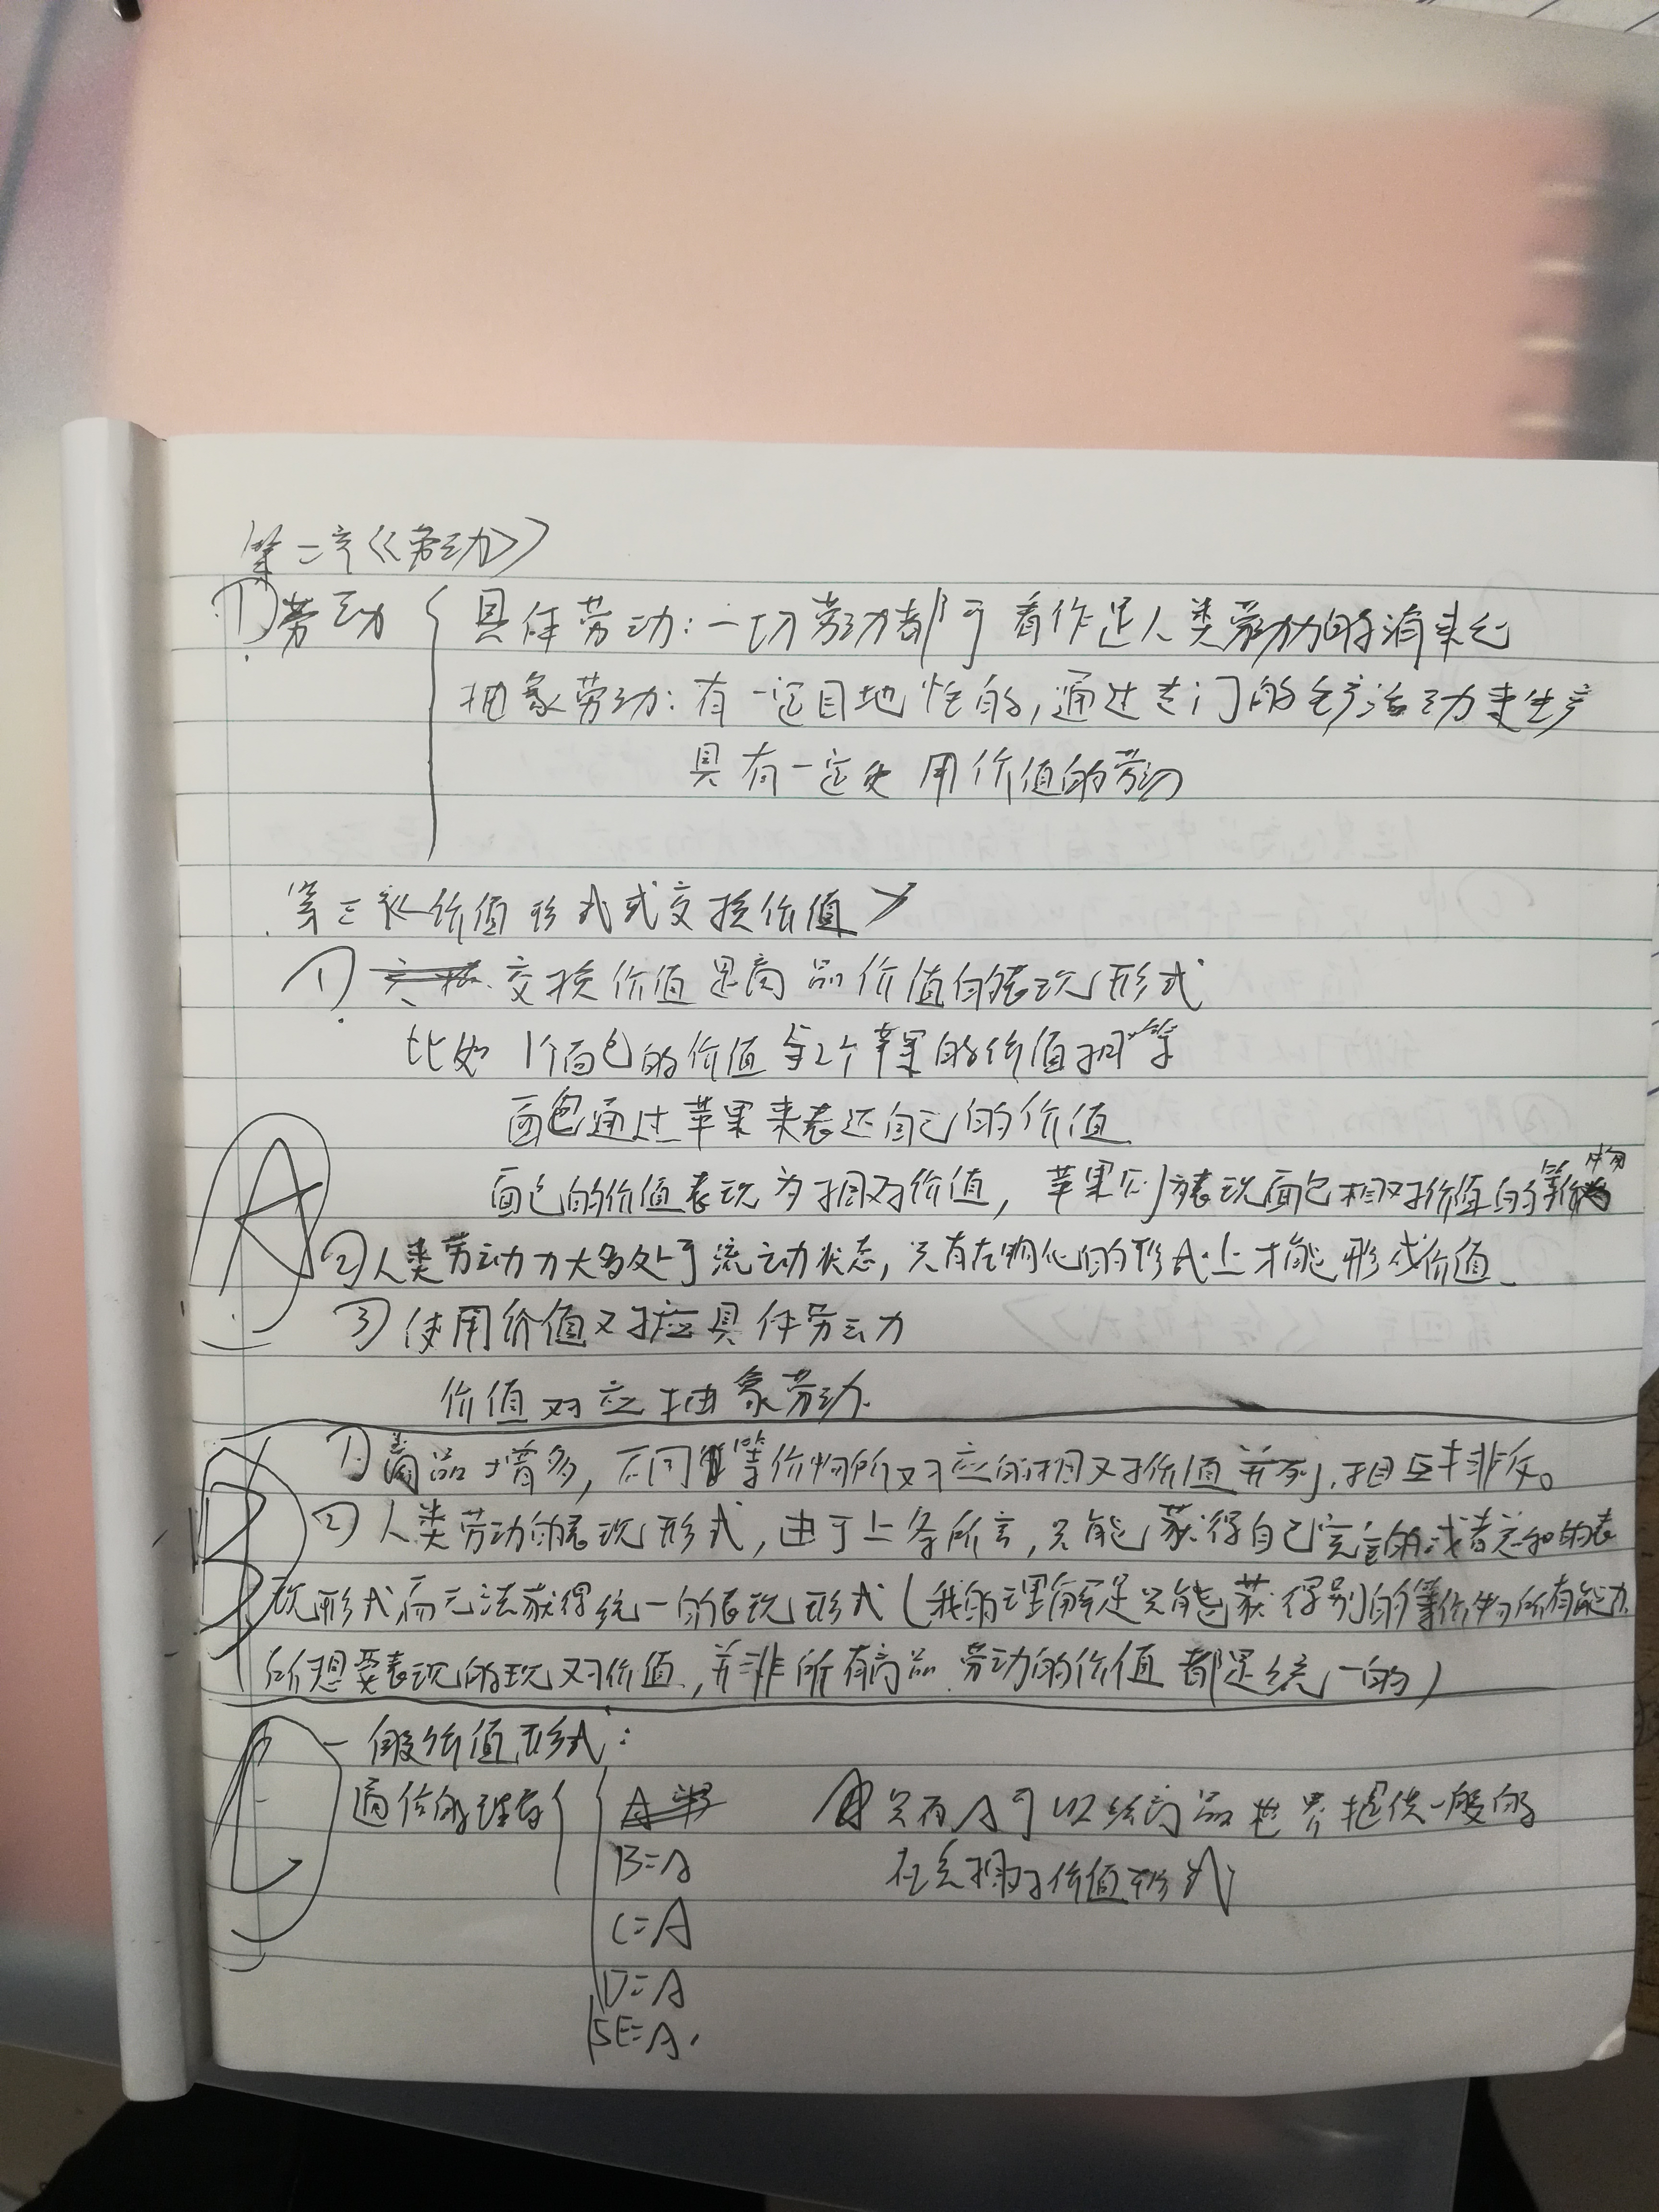 第二章《劳动》
①劳动 { 具体劳动:一切劳动都可看作是人类劳动力的消耗
抽象劳动:有一定目地性的,通过专门的生产活动来生产
具有一定使用价值的劳动
第三章《价值形式或交换价值》
① 交换价值是商品价值的表现形式
比如 1个面包的价值与2个苹果的价值相等
面包通过苹果来表达自己的价值
面包的价值表现为相对价值,苹果则为表现面包相对价值的等价物
A
②人类劳动力大多处于流动状态,只有在物化的形式上才能形成价值
③使用价值对应具体劳动
价值对应抽象劳动.
B
①商品增多,不同等价物所对应的相对价值并列,相互排斥。
②人类劳动的表现形式,由于上条所言,只能获得自己完全的或者总和的表
现形式而无法获得统一的表现形式(我的理解是只能获得别的等价物所有能力
所想要表现的现对价值,并非所有商品 劳动的价值都是统一的)
C
一般价值形式:
只有A可以给商品世界提供一般的
B=A
相对价值形式
C=A
D=A
E=A